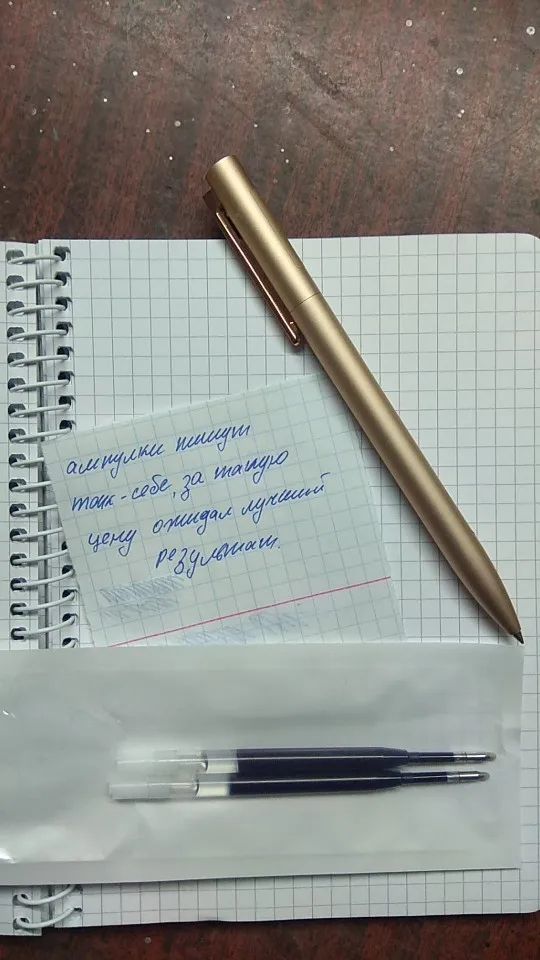 ампулки пишут
так-себе, за такую
цену ожидал лучший
результат.